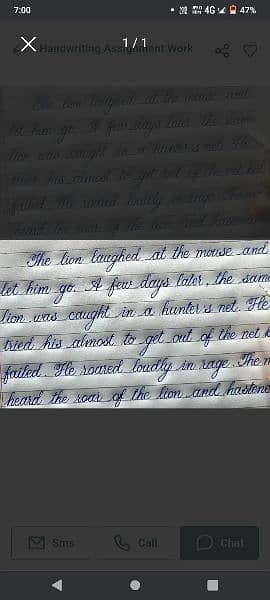 7:00
4G 47%
Handwriting Assignment Work
1/1
The lion laughed at the mouse and
let him go. A few days later, the same
lion was caught in a hunter's net. He
tried his almost to get out of the net
failed. He roared loudly in rage. The
heard the roar of the lion and hastene
Sms Call Chat